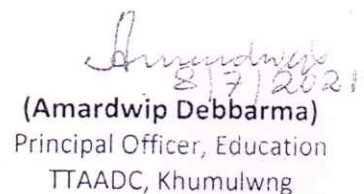 Amardwip
8/7/2021
(Amardwip Debbarma)
Principal Officer, Education
TTAADC, Khumulwng